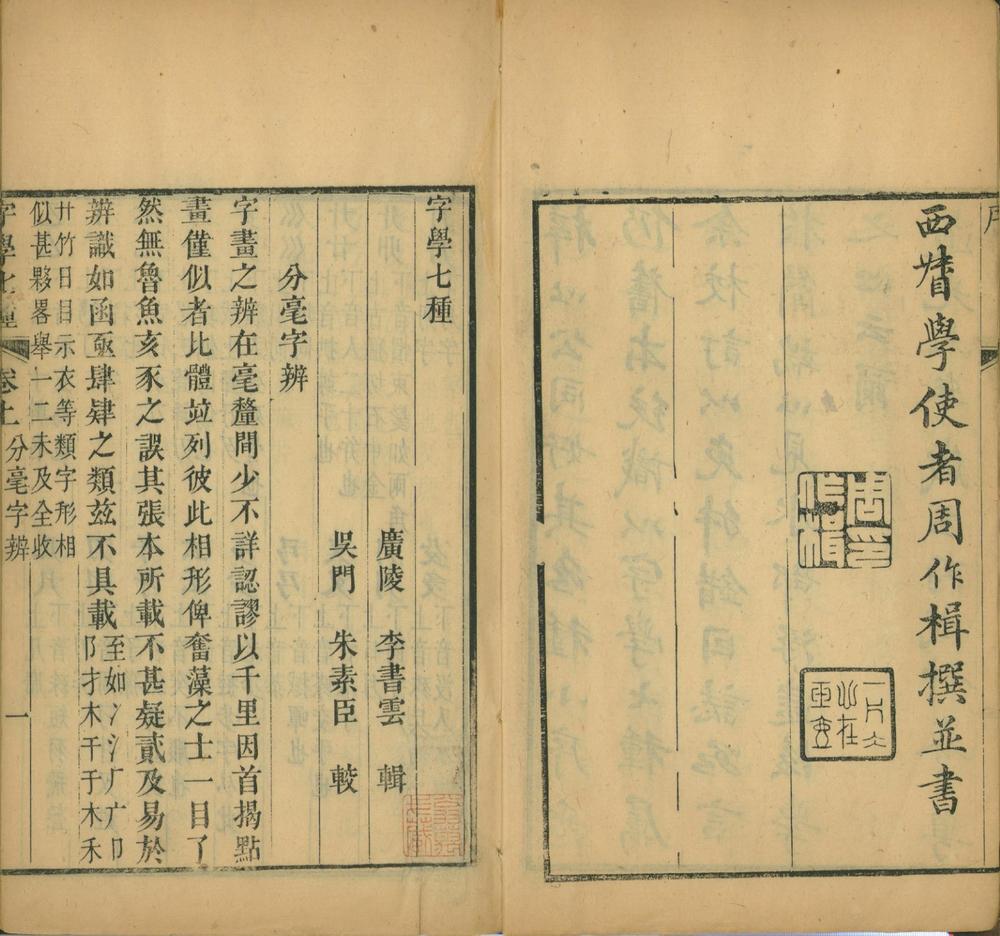 序
西䀼學使者周作楫撰並書
周作楫印
字學七種
廣陵 李書雲 輯
吳門 朱素臣 較
分毫字辨
字畫之辨在毫釐間少不詳認謬以千里因首揭點
畫僅似者比體竝列彼此相形俾奮藻之士一目了
然無魯魚亥豕之誤其張本所載不甚疑貳及易於
辨識如函亟肆肄之類茲不具載至如冫氵厂广卩
阝才木干于木禾
廾竹日目示衣等類字形相
似甚夥畧舉一二未及全收
字學七種 卷上 分毫字辨 一